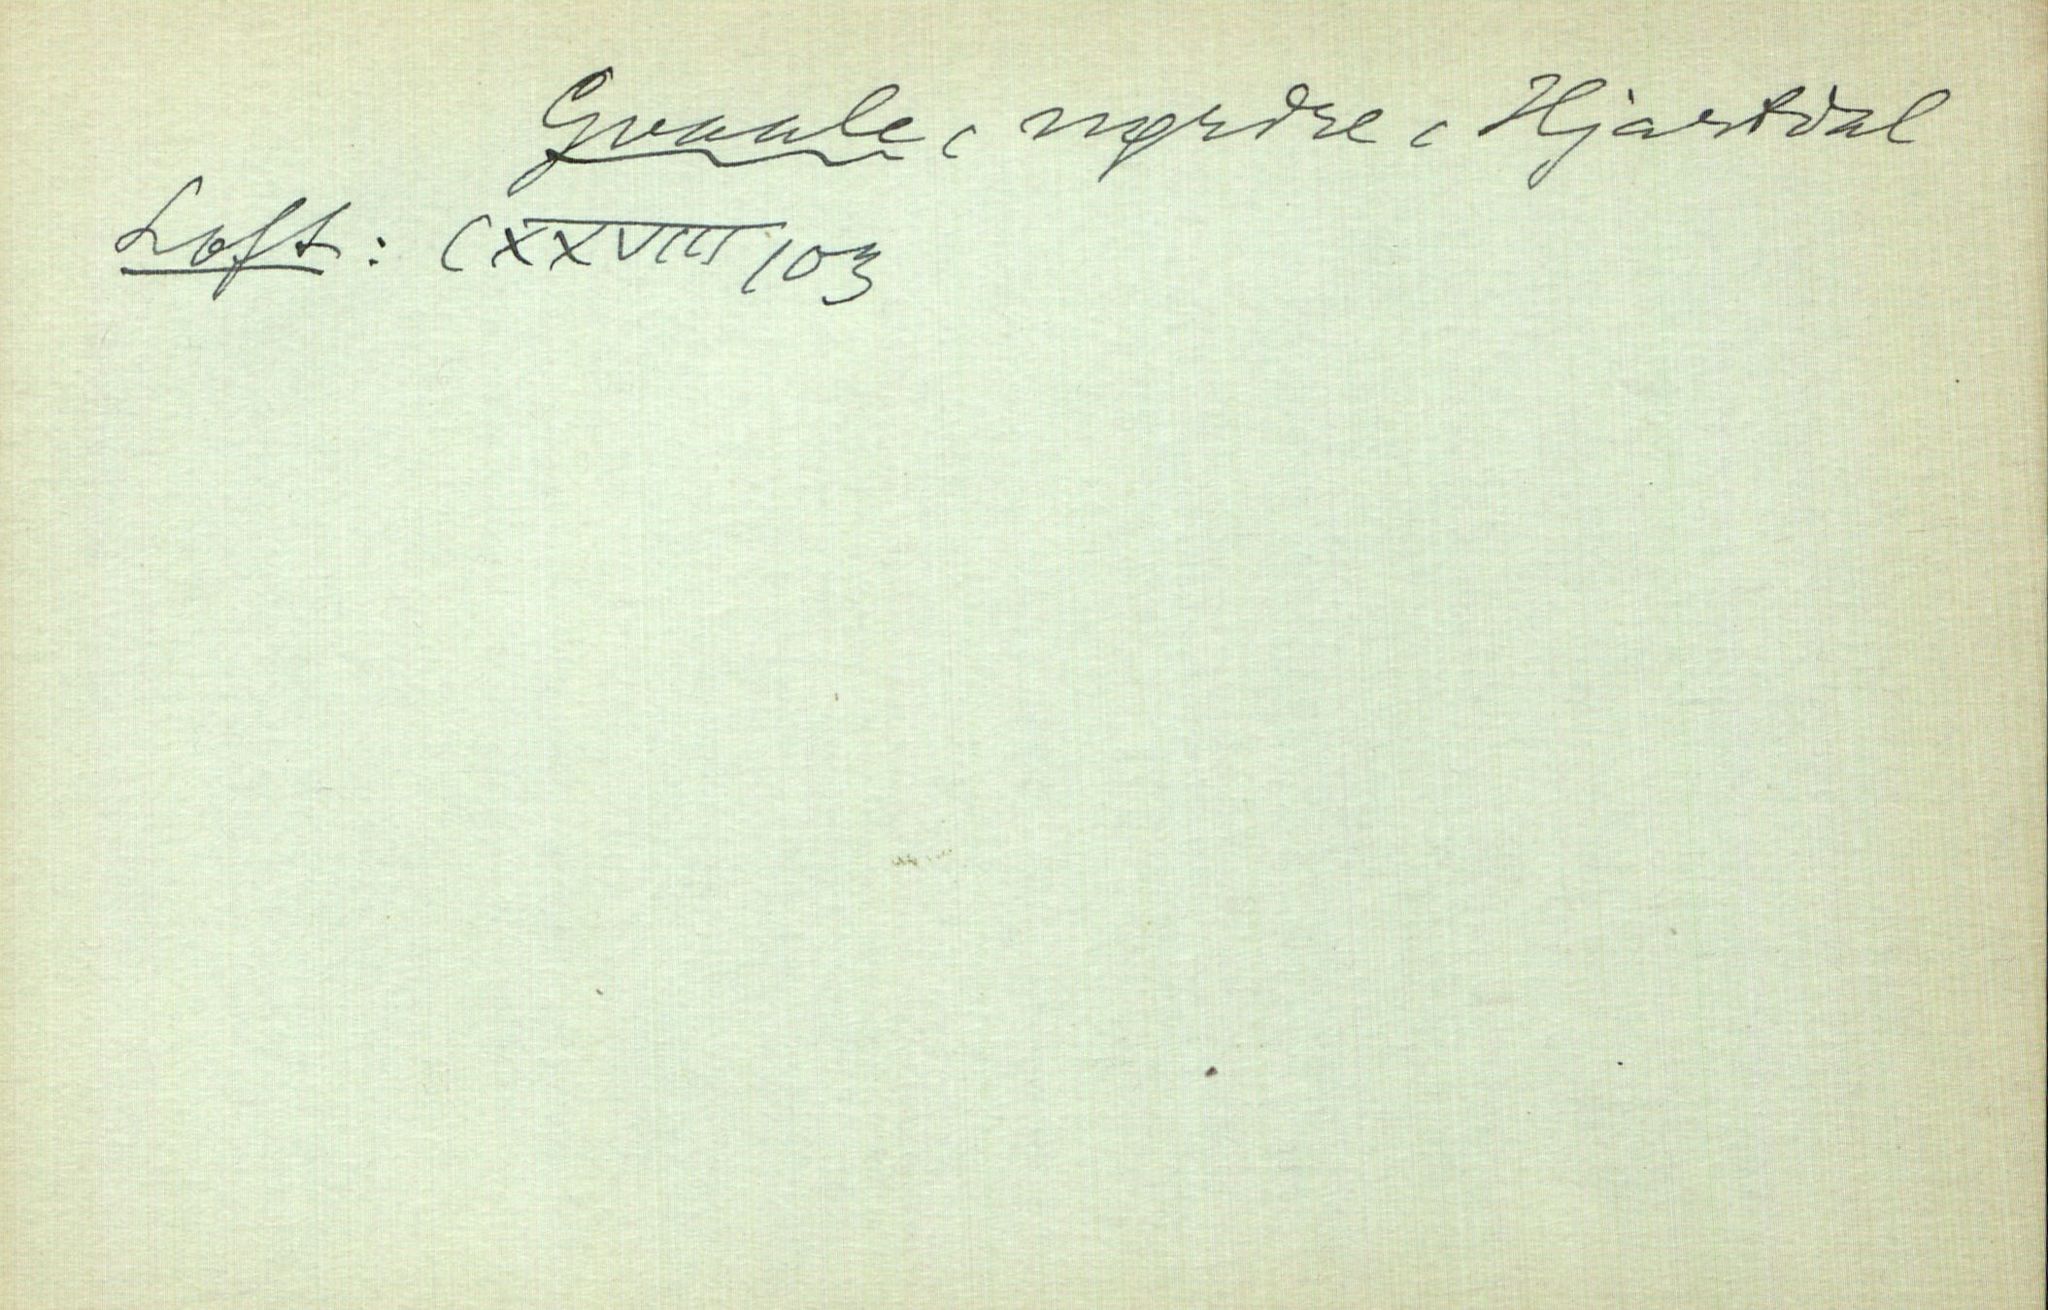 Gvaale, nørdre, Hjartdal
Loft: CXXVIII 103